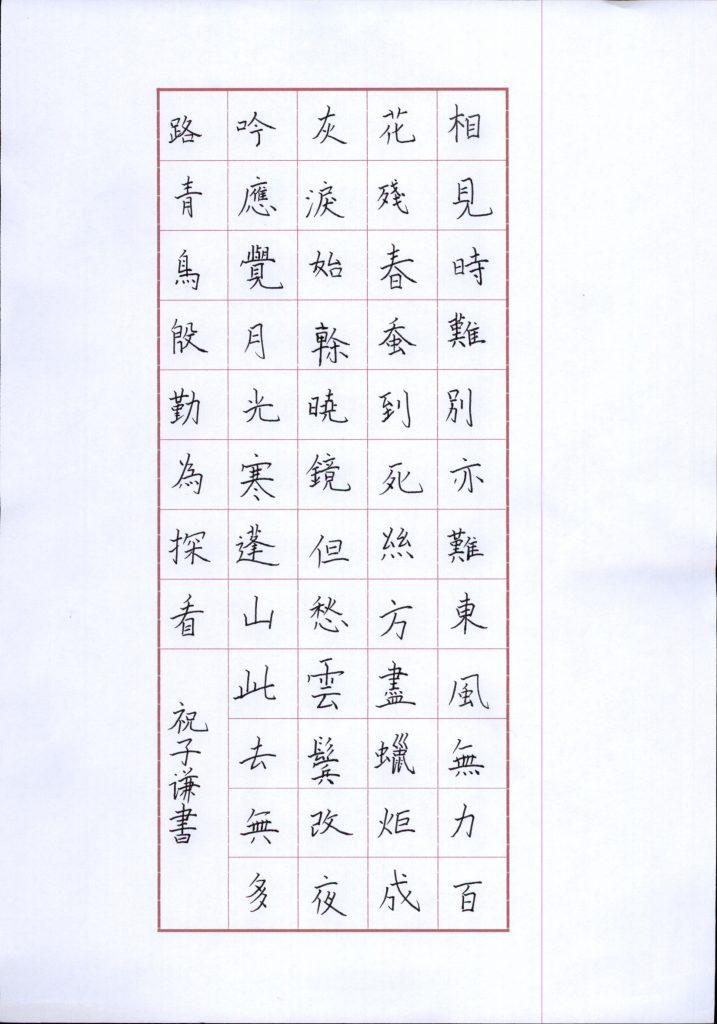 相見時難別亦難東風無力百
花殘春蚕到死絲方盡蠟炬成
灰淚始榦曉鏡但愁雲鬓改夜
吟應覺月光寒蓬山此去無多
路青鳥殷勤為探看
祝子谦書